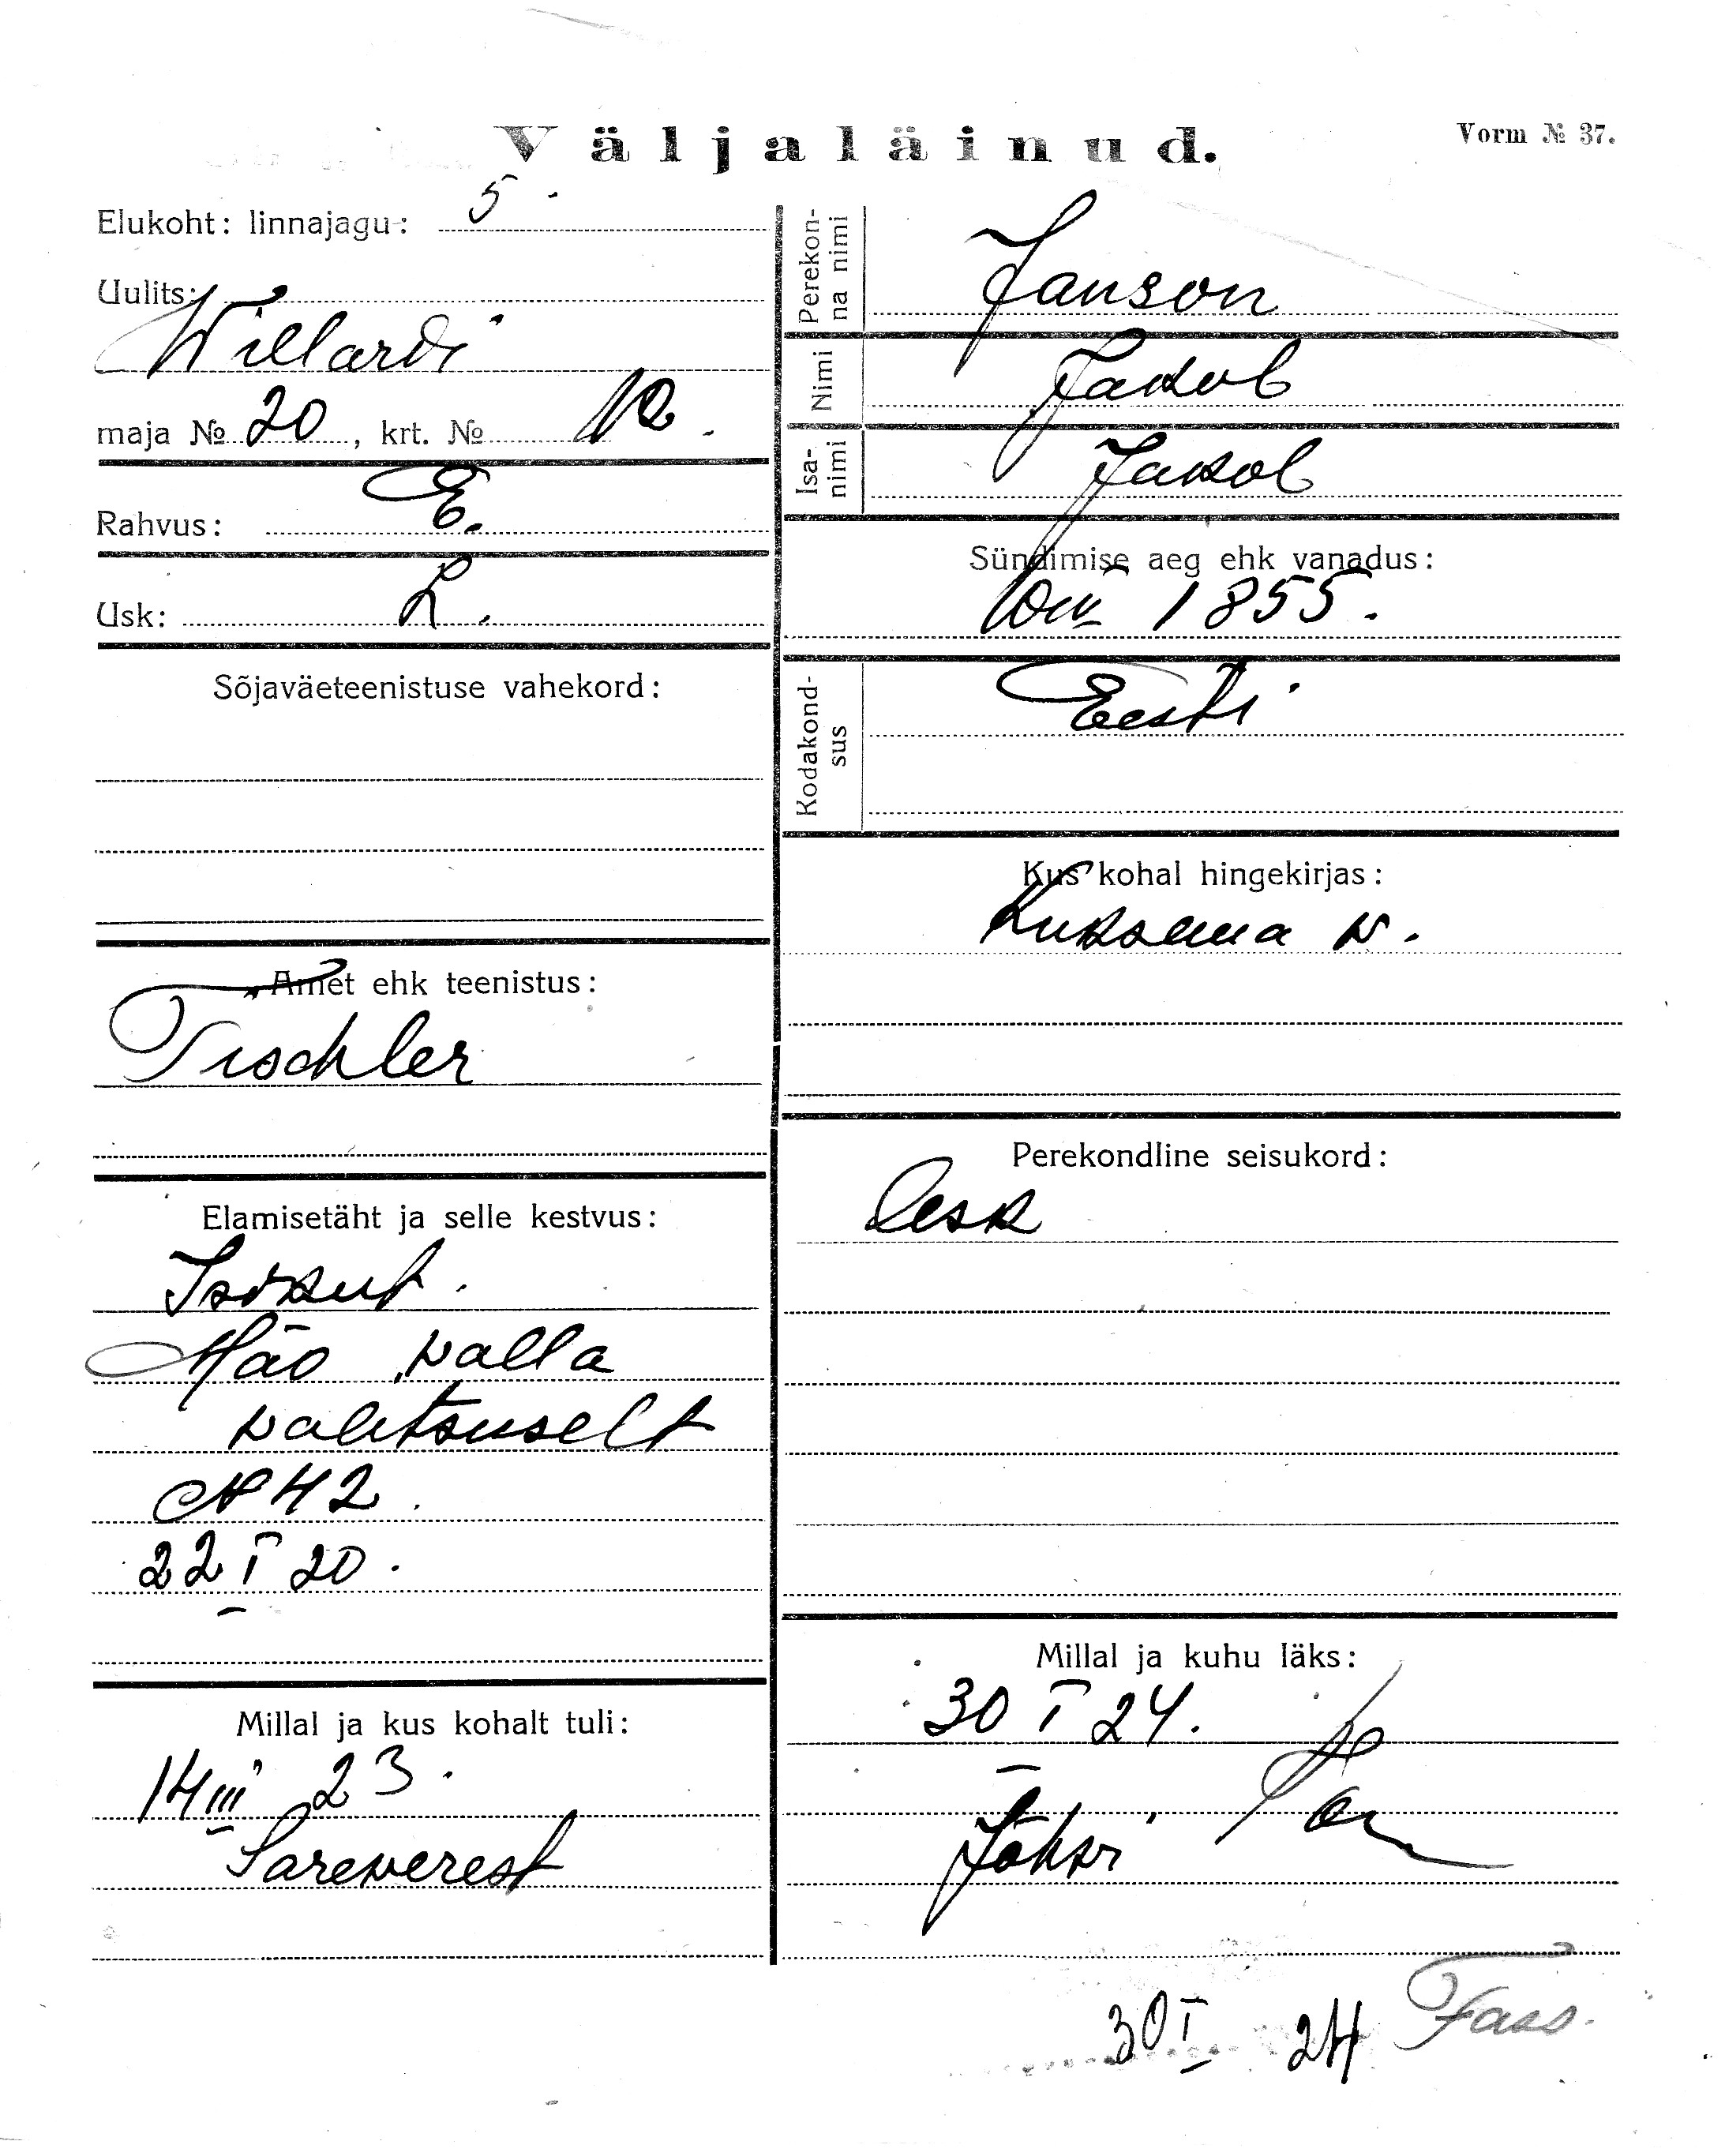 Väljaläinud.
Vorm № 37.
Elukoht: linnajagu: 5.
Uulits:
Willardi
maja № 20, krt. № 12.
Rahvus: E.
Usk: L.
Sõjaväeteenistuse vahekord:
Amet ehk teenistus:
Tischler
Elamisetäht ja selle kestvus:
Isikut.
Mäo walla
walitsuselt
№ 42.
22 I 20.
Millal ja kus kohalt tuli:
14 III 23.
Sarewerest
Perekon-
na nimi
Janson
Nimi
Jakob
Isa-
nimi
Jakob
Sündimise aeg ehk vanadus:
1855.
Kodakond-
sus
Eesti
Kus kohal hingekirjas:
Kuksema w.
Perekondline seisukord:
lesk
Millal ja kuhu läks:
30 I 24.
Jõhwi
30 I 24